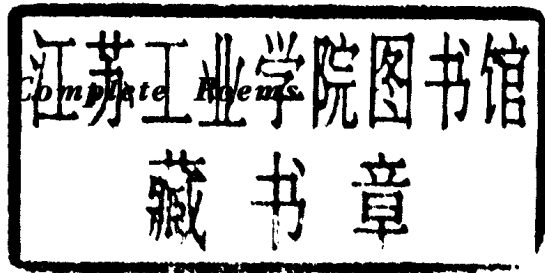 江苏工业学院图书馆
Complete Poems
藏书章